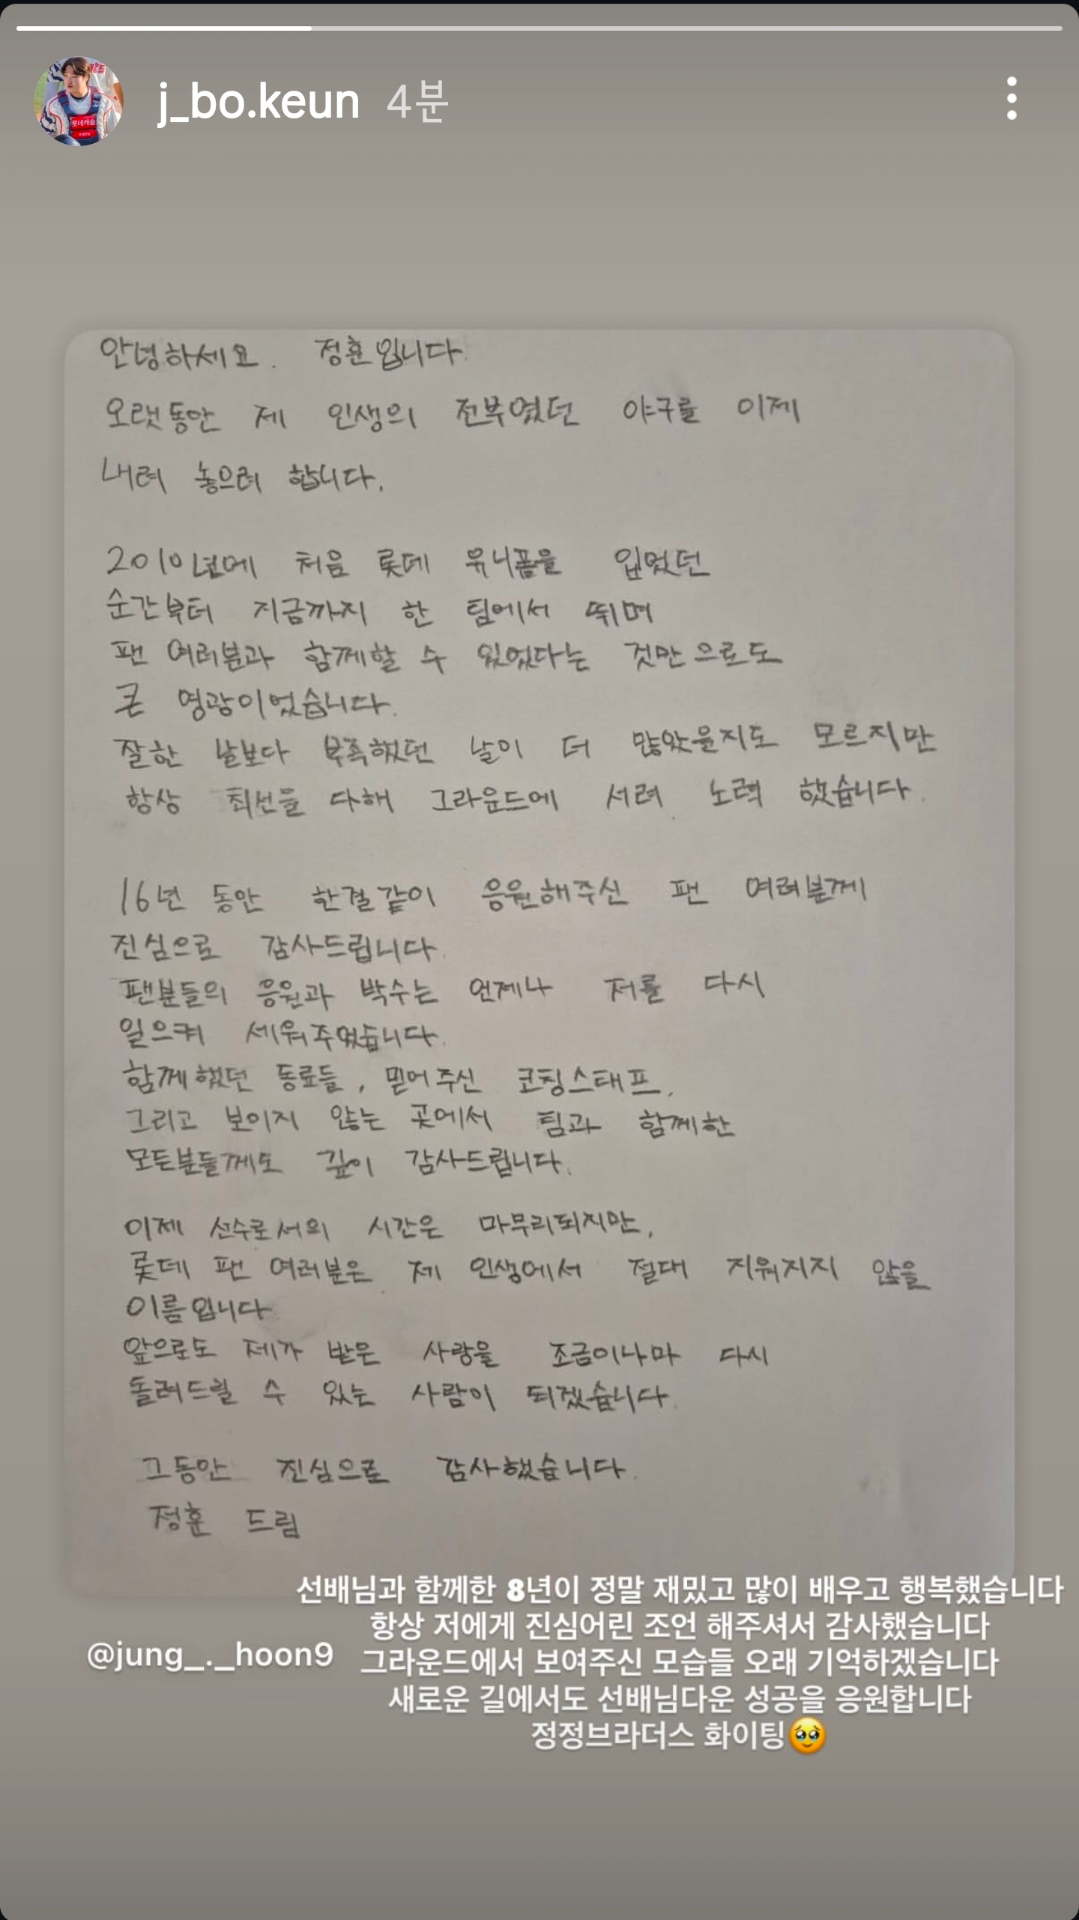 j_bo.keun 4분
안녕하세요. 정훈입니다.
오랫동안 제 인생의 전부였던 야구를 이제
내려 놓으려 합니다.
2010년에 처음 롯데 유니폼을 입었던
순간부터 지금까지 한 팀에서 뛰며
팬 여러분과 함께할 수 있었다는 것만으로도
큰 영광이었습니다.
잘한 날보다 부족했던 날이 더 많았을지도 모르지만
항상 최선을 다해 그라운드에 서려 노력 했습니다.
16년 동안 한결같이 응원해주신 팬 여러분께
진심으로 감사드립니다.
팬분들의 응원과 박수는 언제나 저를 다시
일으켜 세워주었습니다.
함께했던 동료들, 믿어주신 코칭스태프,
그리고 보이지 않는 곳에서 팀과 함께한
모든분들께도 깊이 감사드립니다.
이제 선수로서의 시간은 마무리되지만,
롯데 팬 여러분은 제 인생에서 절대 지워지지 않을
이름입니다
앞으로도 제가 받은 사랑을 조금이나마 다시
돌려드릴 수 있는 사람이 되겠습니다.
그동안 진심으로 감사했습니다.
정훈 드림
선배님과 함께한 8년이 정말 재밌고 많이 배우고 행복했습니다
항상 저에게 진심어린 조언 해주셔서 감사했습니다
@jung_._hoon9 그라운드에서 보여주신 모습들 오래 기억하겠습니다
새로운 길에서도 선배님다운 성공을 응원합니다
정정브라더스 화이팅🥹